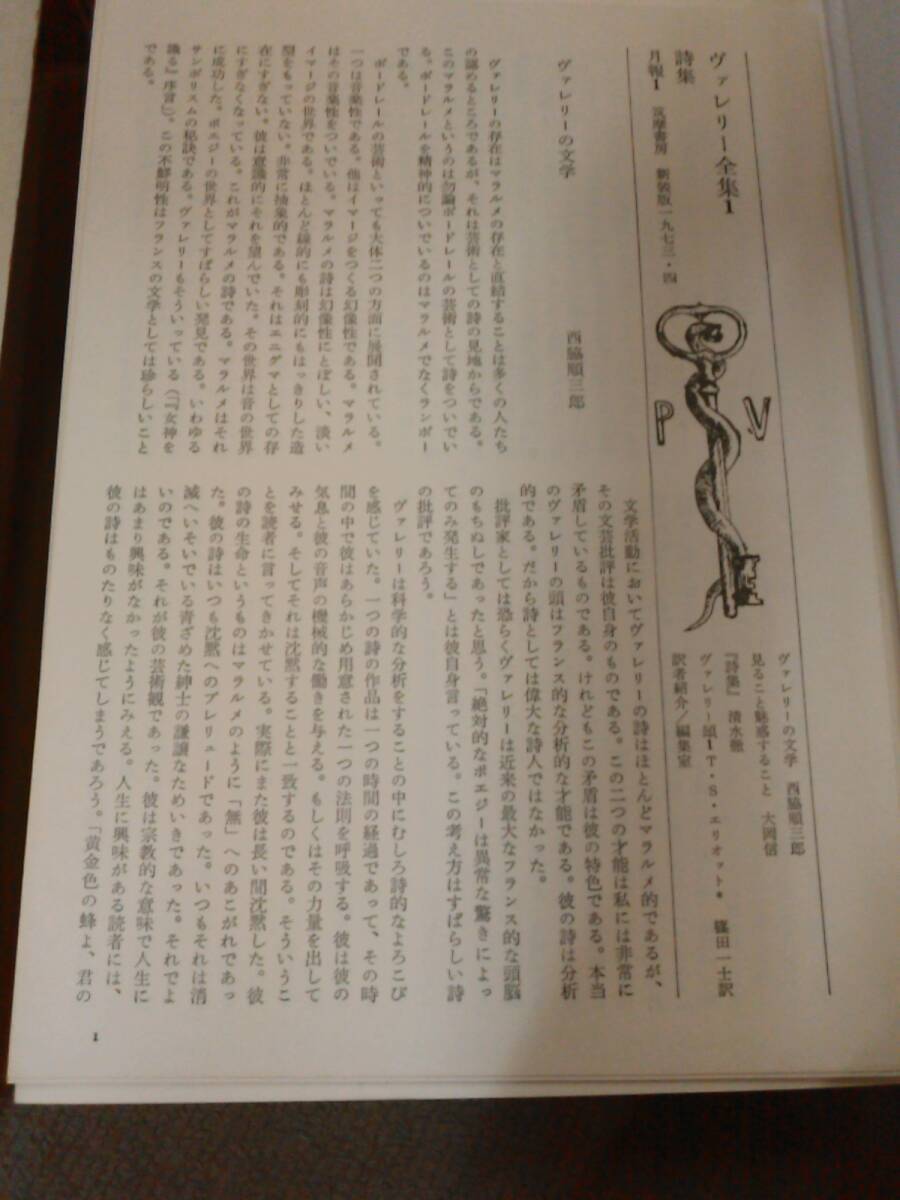 ヴァレリー全集1
詩集
月報1 筑摩書房 新装版一九七三・四
P V
ヴァレリーの文学 西脇順三郎
見ること魅惑すること 大岡信
『詩集』 清水徹
ヴァレリー頌1 T・S・エリオット* 篠田一士訳
訳者紹介/編集室
ヴァレリーの文学
西脇順三郎
ヴァレリーの存在はマラルメの存在と直結することは多くの人たち
の認めるところであるが、それは芸術としての詩の見地からである。
このマラルメというのは勿論ボードレールの芸術として詩をついでい
る。ボードレールを精神的についでいるのはマラルメでなくランボー
である。
ボードレールの芸術といっても大体二つの方面に展開されている。
一つは音楽性である。他はイマージをつくる幻像性である。マラルメ
はその音楽性をついでいる。マラルメの詩は幻像性にとぼしい、淡い
イマージの世界である。ほとんど線的にも彫刻的にもはっきりした造
型をもっていない。非常に抽象的である。それはエニグマとしての存
在にすぎない。彼は意識的にそれを望んでいた。その世界は音の世界
にすぎなくなっている。これがマラルメの詩である。マラルメはそれ
に成功した。ポエジーの世界としてすばらしい発見である。いわゆる
サンボリスムの秘訣である。ヴァレリーもそういっている(『女神を
識る』序言)。この不鮮明性はフランスの文学としては珍らしいこと
である。
文学活動においてヴァレリーの詩はほとんどマラルメ的であるが、
その文芸批評は彼自身のものである。この二つの才能は私には非常に
矛盾しているものである。けれどもこの矛盾は彼の特色である。本当
のヴァレリーの頭はフランス的な分析的な才能である。彼の詩は分析
的である。だから詩としては偉大な詩人ではなかった。
批評家としては恐らくヴァレリーは近来の最大なフランス的な頭脳
のもちぬしであったと思う。「絶対的なポエジーは異常な驚きによっ
てのみ発生する」とは彼自身言っている。この考え方はすばらしい詩
の批評であろう。
ヴァレリーは科学的な分析をすることの中にむしろ詩的なよろこび
を感じていた。一つの詩の作品は一つの時間の経過であって、その時
間の中で彼はあらかじめ用意された一つの法則を呼吸する。彼は彼の
気息と彼の音声の機械的な働きを与える。もしくはその力量を出して
みせる。そしてそれは沈黙することと一致するのである。そういうこ
とを読者に言ってきかせている。実際にまた彼は長い間沈黙した。彼
の詩の生命というものはマラルメのように「無」へのあこがれであっ
た。彼の詩はいつも沈黙へのプレリュードであった。いつもそれは消
滅へいそいでいる青ざめた紳士の謙譲なためいきであった。それでよ
いのである。それが彼の芸術観であった。彼は宗教的な意味で人生に
はあまり興味がなかったようにみえる。人生に興味がある読者には、
彼の詩はものたりなく感じてしまうであろう。「黄金色の蜂よ、君の
1